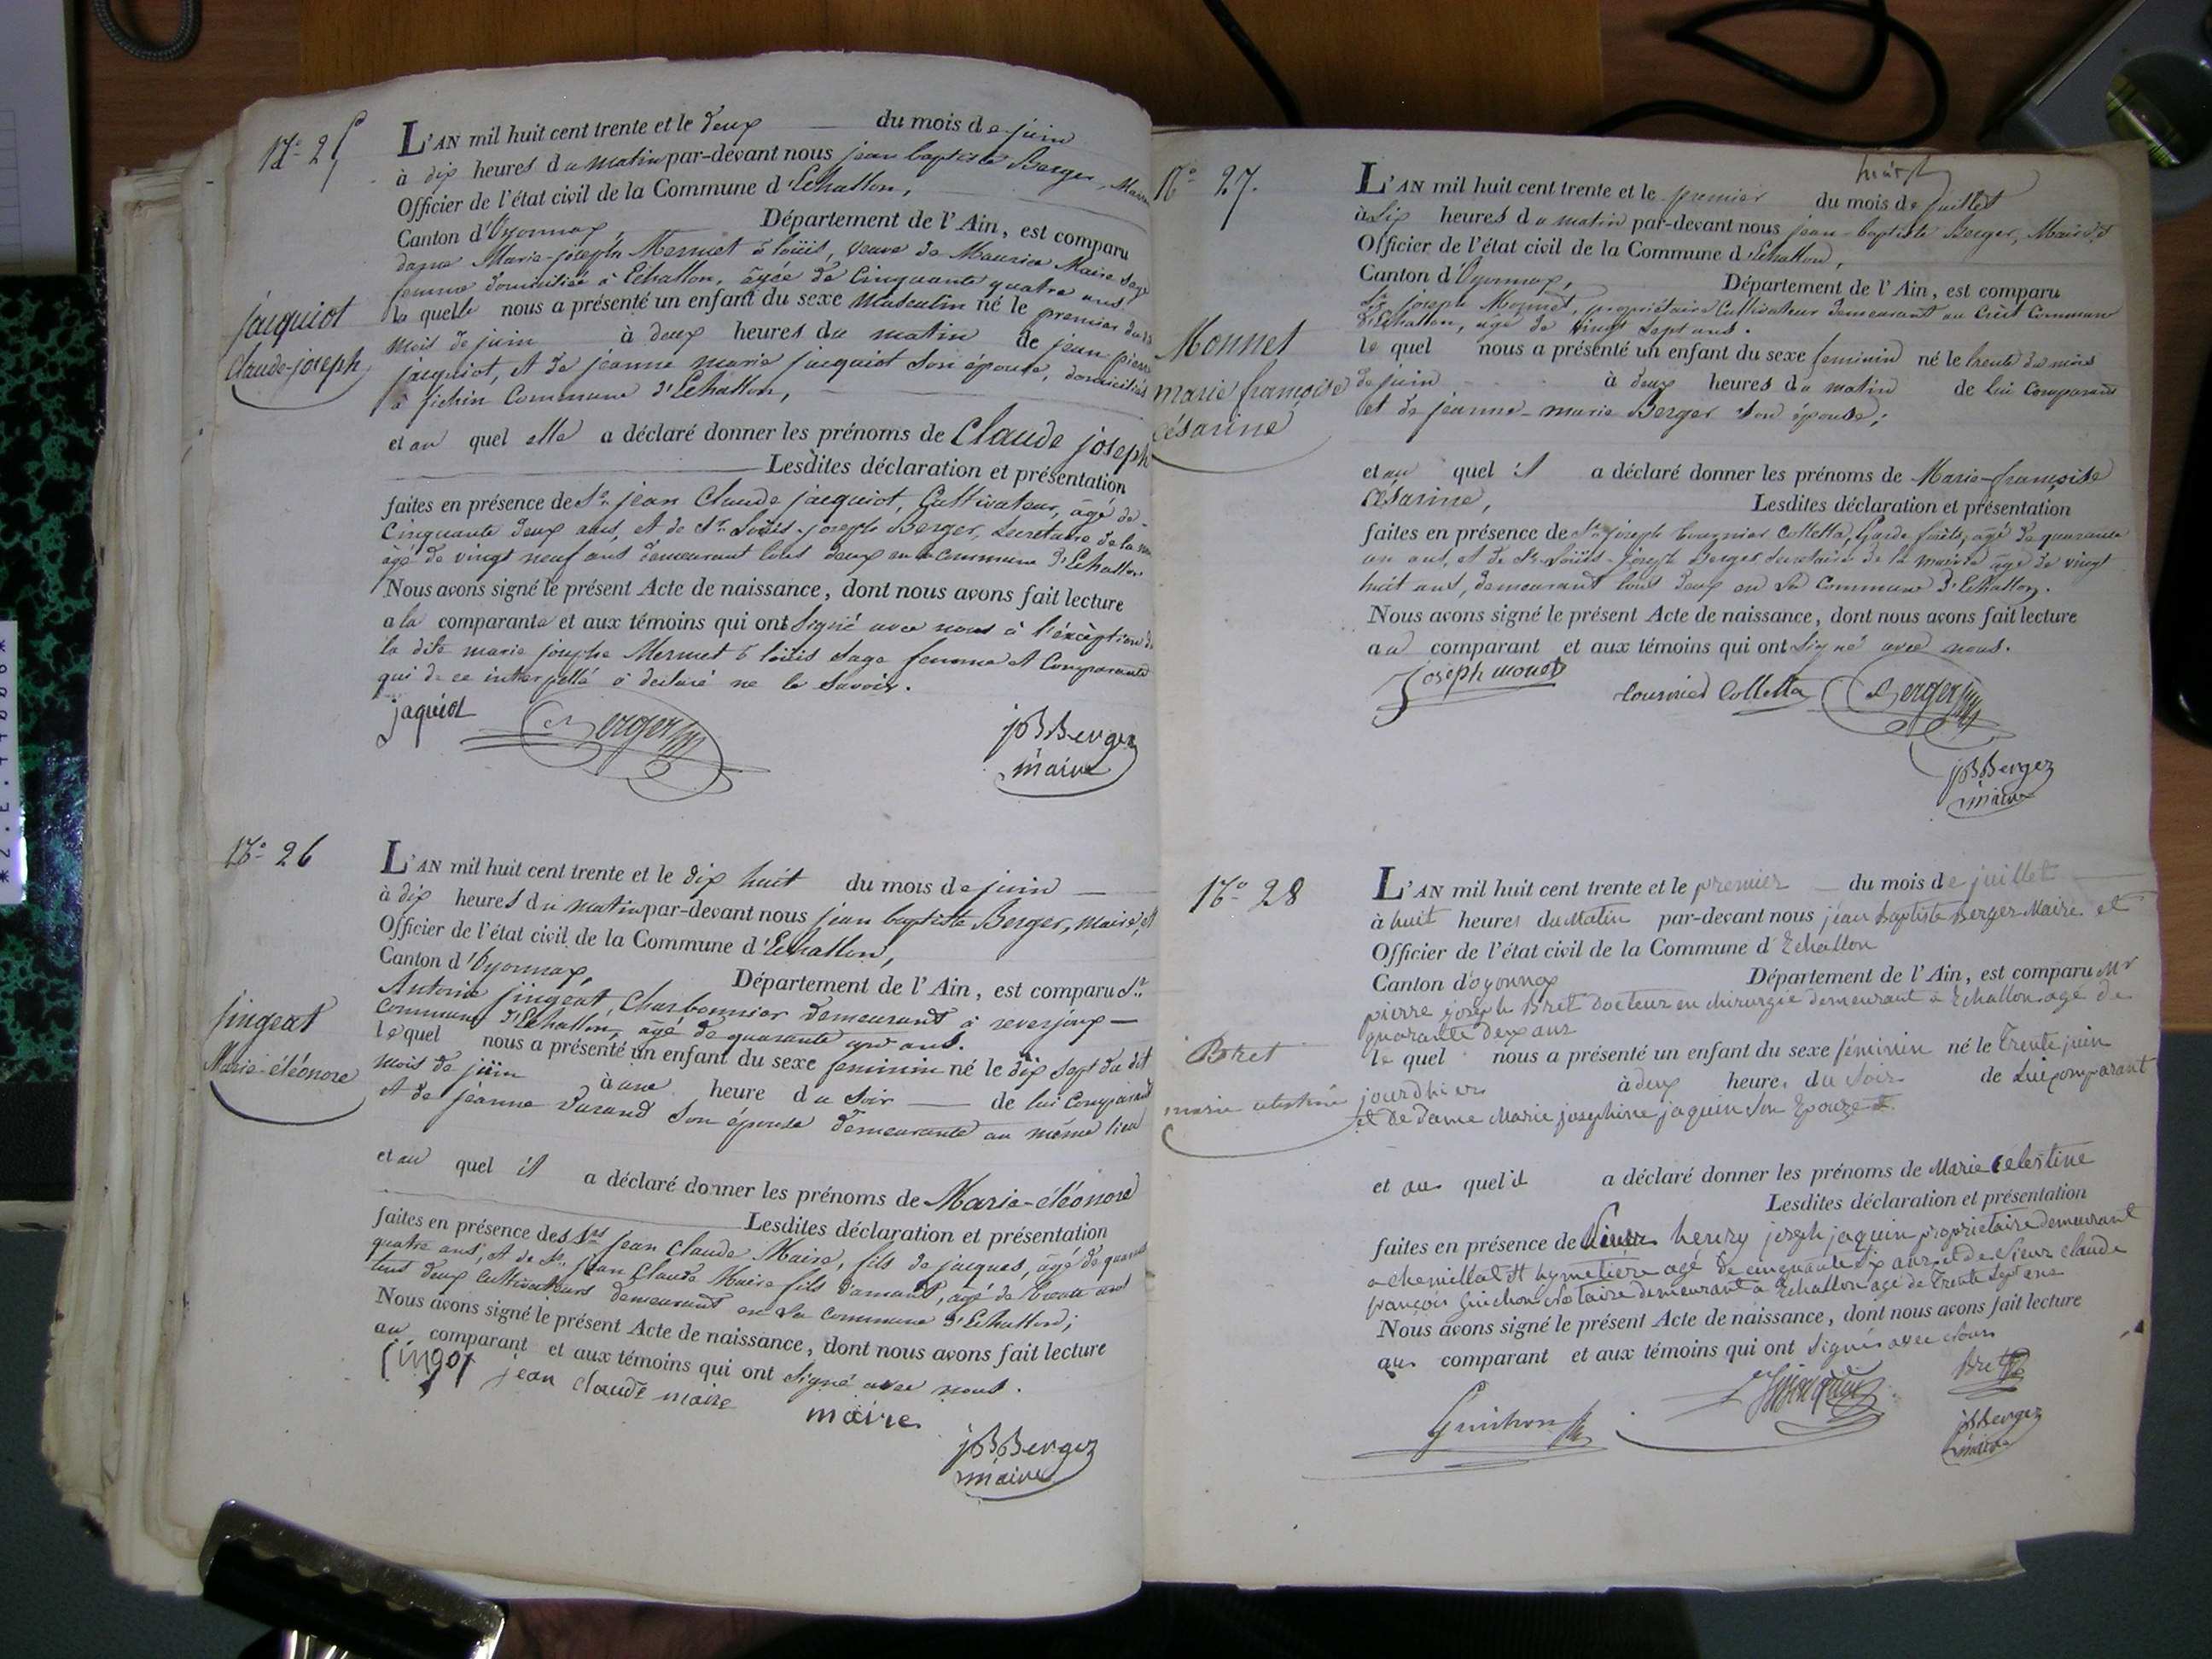 N.º 25
L'AN mil huit cent trente et le deux du mois de juin
à dix heures du matin par-devant nous jean baptiste Berger, Maire
Officier de l'état civil de la Commune d'Echallon,
Canton d'Oyonnax, Département de l'Ain, est comparu
dame Marie-josephe Mermet à loüis, veuve de Maurice Maire sage
femme domiciliée à Echallon, âgée de Cinquante quatre ans.
la quelle nous a présenté un enfant du sexe Masculin né le premier du dt
mois de juin à deux heures du matin de jean pierre
jacquiot, et de jeanne marie jacquiot son épouse, domiciliés
à Commune d'Echallon,
jacquiot
Claude-joseph
et au quel elle a déclaré donner les prénoms de Claude joseph
Lesdites déclaration et présentation
faites en présence de Sr. jean Claude jacquiot, Cultivateur, âgé de
Cinquante deux ans, et de Sr. Loüis-joseph Berger, Secretaire de la
âgé de vingt neuf ans demeurant tous deux en la commune d'Echallon
Nous avons signé le présent Acte de naissance, dont nous avons fait lecture
a la comparante et aux témoins qui ont signé avec nous à l'éxception de
la dite marie josephe Mermet à loüis sage femme et Comparante
qui de ce interpellé à declaré ne le savoir.
jaquiot Berger
jB Berger
maire
N.º 26
L'AN mil huit cent trente et le dix huit du mois de juin
à dix heures du matin par-devant nous jean baptiste Berger, maire, et
Officier de l'état civil de la Commune d'Echallon,
Canton d'Oyonnax, Département de l'Ain, est comparu Sr.
Antoine jingeat, Charbonnier demeurant à reversjoux
Commune d'Echallon, âgé de quarante ans.
le quel nous a présenté un enfant du sexe feminin né le dix sept du dit
mois de juin à une heure du soir de lui Comparant
et de jeanne Durand son épouse demeurante au même lieu
jingeat
Marie-éléonore
et au quel il a déclaré donner les prénoms de Marie-éléonore
Lesdites déclaration et présentation
faites en présence des Srs jean Claude Maire, fils de jacques, âgé de quarante
quatre ans, et de Sr. jean Claude Maire fils d'amant, âgé de trente ans
tous deux Cultivateurs demeurant en la commune d'Echallon;
Nous avons signé le présent Acte de naissance, dont nous avons fait lecture
au comparant et aux témoins qui ont signé avec nous.
jean claude maire
maire
jB Berger
maire
N.º 27.
L'AN mil huit cent trente et le premier du mois de juillet
à six heures du matin par-devant nous jean-baptiste Berger, Maire et
Officier de l'état civil de la Commune d'Echallon,
Canton d'Oyonnax, Département de l'Ain, est comparu
Sr. joseph Monnet, propriétaire Cultivateur demeurant au Crêt Commune
d'Echallon, âgé de vingt sept ans.
le quel nous a présenté un enfant du sexe feminin né le trente du mois
de juin à deux heures du matin de lui Comparant
et de jeanne-marie Berger son épouse;
Monnet
marie françoise
césarine
et au quel il a déclaré donner les prénoms de Marie-françoise
césarine, Lesdites déclaration et présentation
faites en présence de Sr. joseph tournier Colletta, Garde forêts, âgé de quarante
un ans, et de Sr. Loüis-joseph Berger secretaire de la mairie âgé de vingt
huit ans, demeurant tous deux en la Commune d'Echallon.
Nous avons signé le présent Acte de naissance, dont nous avons fait lecture
au comparant et aux témoins qui ont signé avec nous.
joseph monet
tournier Colletta Berger
jB Berger
maire
N.º 28
L'AN mil huit cent trente et le premier du mois de juillet
à huit heures du Matin par-devant nous jean baptiste Berger Maire et
Officier de l'état civil de la Commune d'Echallon
Canton d'oyonnax Département de l'Ain, est comparu Mr
pierre joseph Bret Docteur en chirurgie demeurant a Echallon agé de
quarante deux ans
le quel nous a présenté un enfant du sexe féminin né le trente juin
jourdhier à deux heures du Soir de Lui comparant
et de Dame Marie josephine jaquin Son Epouze
Bret
marie celestine
et au quel il a déclaré donner les prénoms de Marie Celestine
Lesdites déclaration et présentation
faites en présence de Sieur henry joseph jaquin proprietaire demeurant
a chemillat et hymetière agé de cinquante six ans et de Sieur claude
françois Guichon Notaire demeurant a Echallon agé de Trente Sept ans
Nous avons signé le présent Acte de naissance, dont nous avons fait lecture
au comparant et aux témoins qui ont signés avec Nous
Bret
Guichon
jB Berger
maire